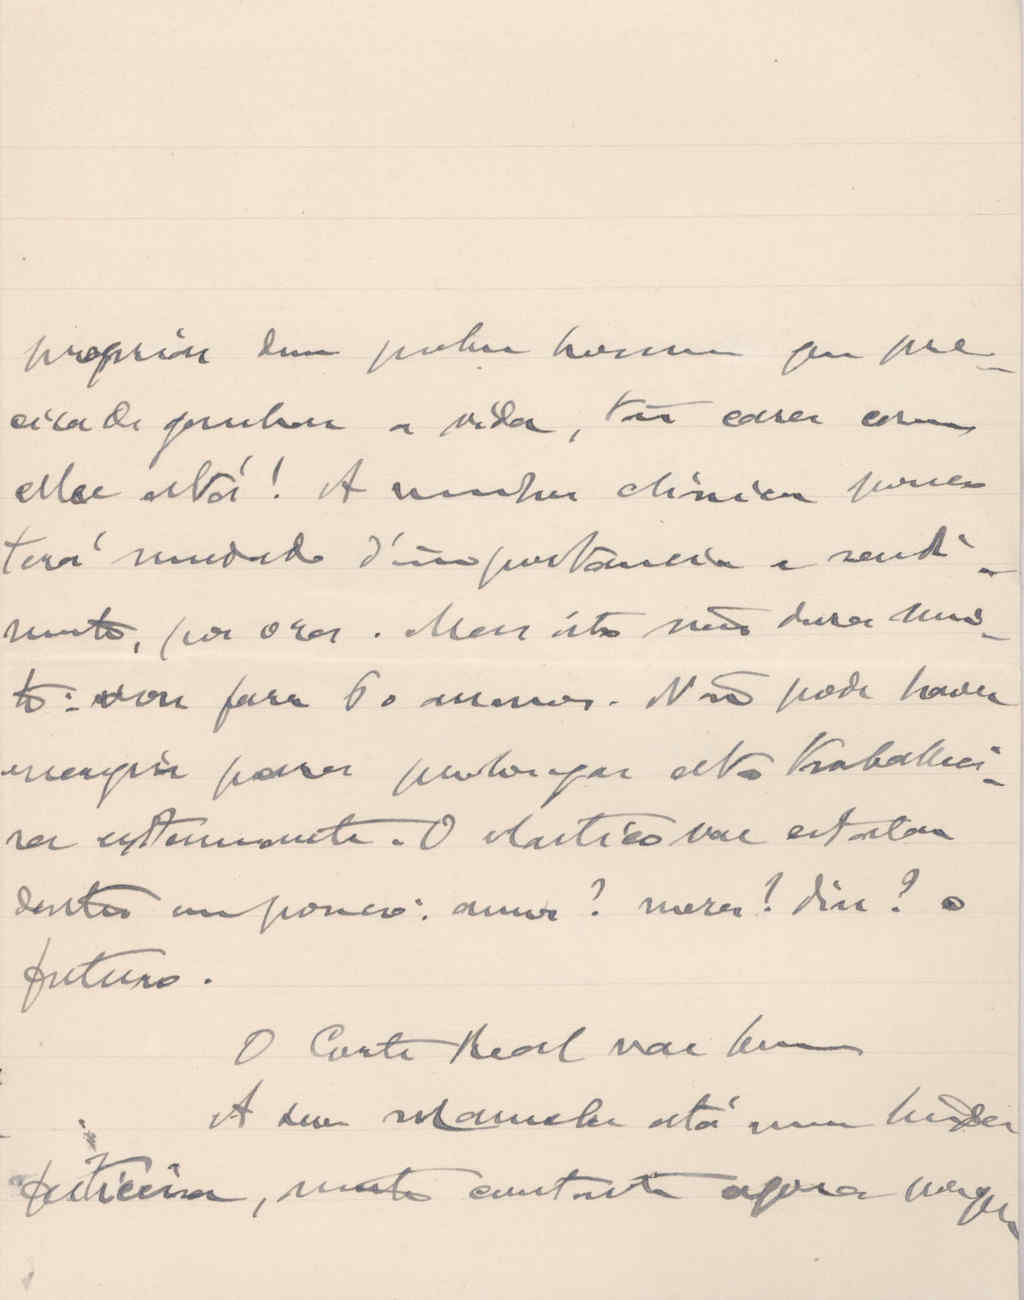 proprias dum pobre homem que pre-
cisa de ganhar a vida, tão cara como
ella está! A minha clinica pouco
terá mudado d'importancia e rendi-
mento, por ora. Mas isto não dura mui-
to: vou fazer 60 annos. Não pode haver
energia para prolongar esta trabalhei-
ra extenuante. O elastico vae estalar
dentro em pouco: annos? mezes? dias? o
futuro.
O Corte Real vae bem
A sua Manuela está uma linda
feiticeira, muito contente agora porque